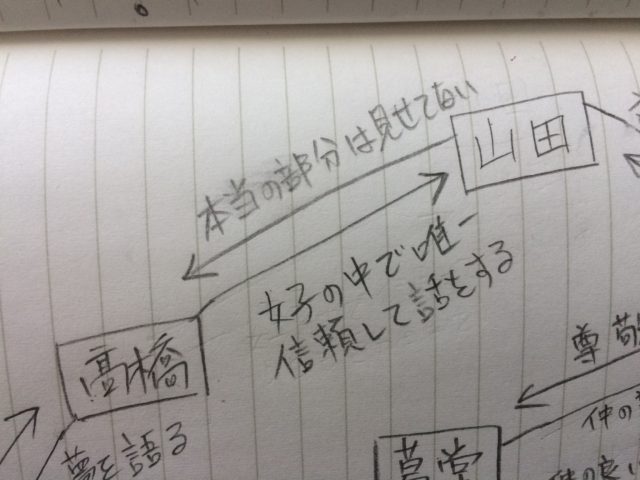 本当の部分は見せてない
山田
女子の中で唯一
信頼して話をする
高橋
夢を語る
尊敬
仲の